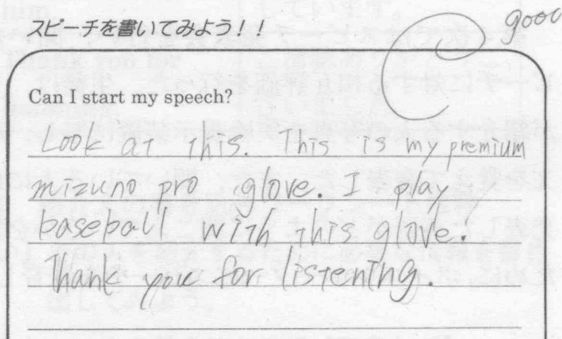 スピーチを書いてみよう！！
good
Can I start my speech?
Look at this. This is my premium
mizuno pro glove. I play
baseball with this glove.
Thank you for listening.